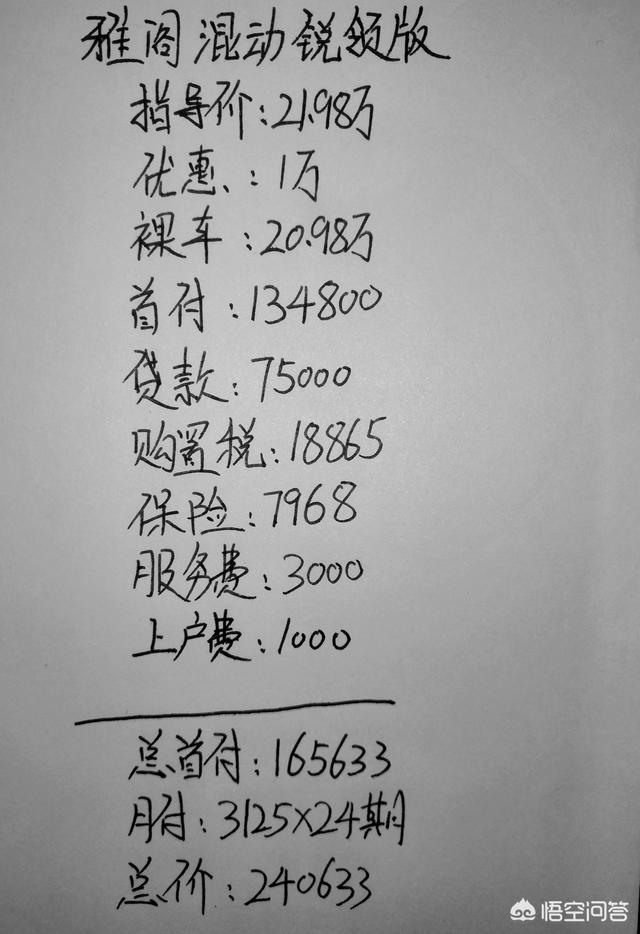 雅阁混动锐领版
指导价:21.98万
优惠:1万
裸车:20.98万
首付:134800
贷款:75000
购置税:18865
保险:7968
服务费:3000
上户费:1000
总首付:165633
月付:3125×24期
总价:240633
悟空问答